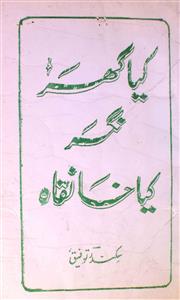 کیا گھر
نگر
کیا خانقاہ
سکندر توفیق